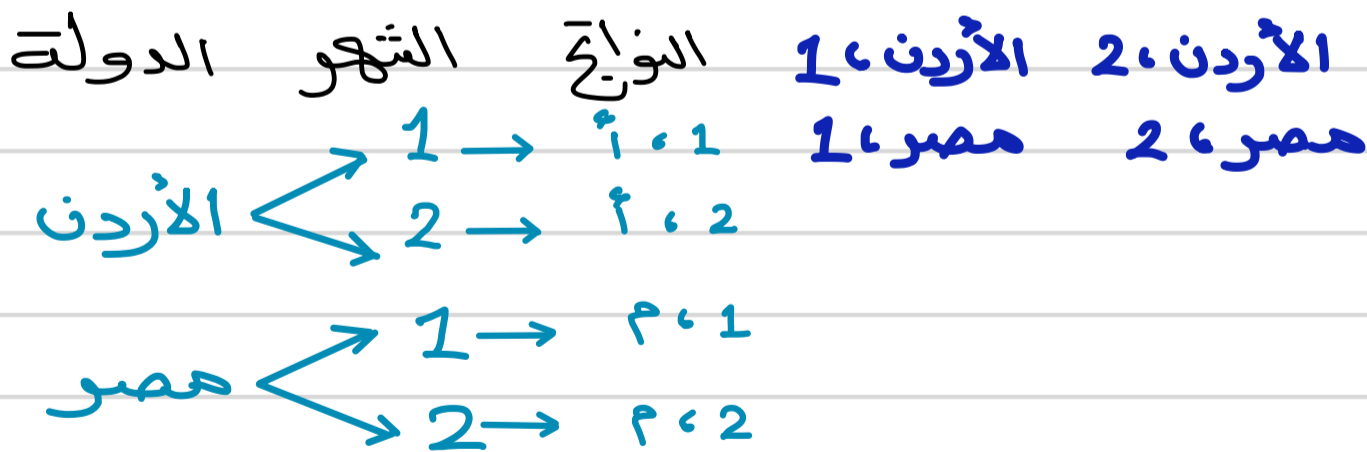 الدولة الشهر النواتج الأردن، 1 الأردن، 2
1 → أ، 1 مصر، 1 مصر، 2
الأردن 2 → أ، 2
1 → م، 1
مصر
2 → م، 2